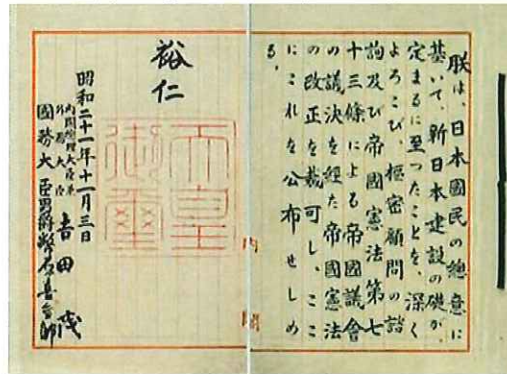 朕は、日本國民の總意に
基いて、新日本建設の礎が、
定まるに至つたことを、深く
よろこび、樞密顧問の諮
詢及び帝國憲法第七
十三條による帝國議會
の議決を經た帝國憲法
の改正を裁可し、ここ
にこれを公布せしめ
る。
裕仁
天皇
御璽
昭和二十一年十一月三日
內閣總理大臣兼
外務大臣 吉田茂
國務大臣男爵幣原喜重郎
內閣